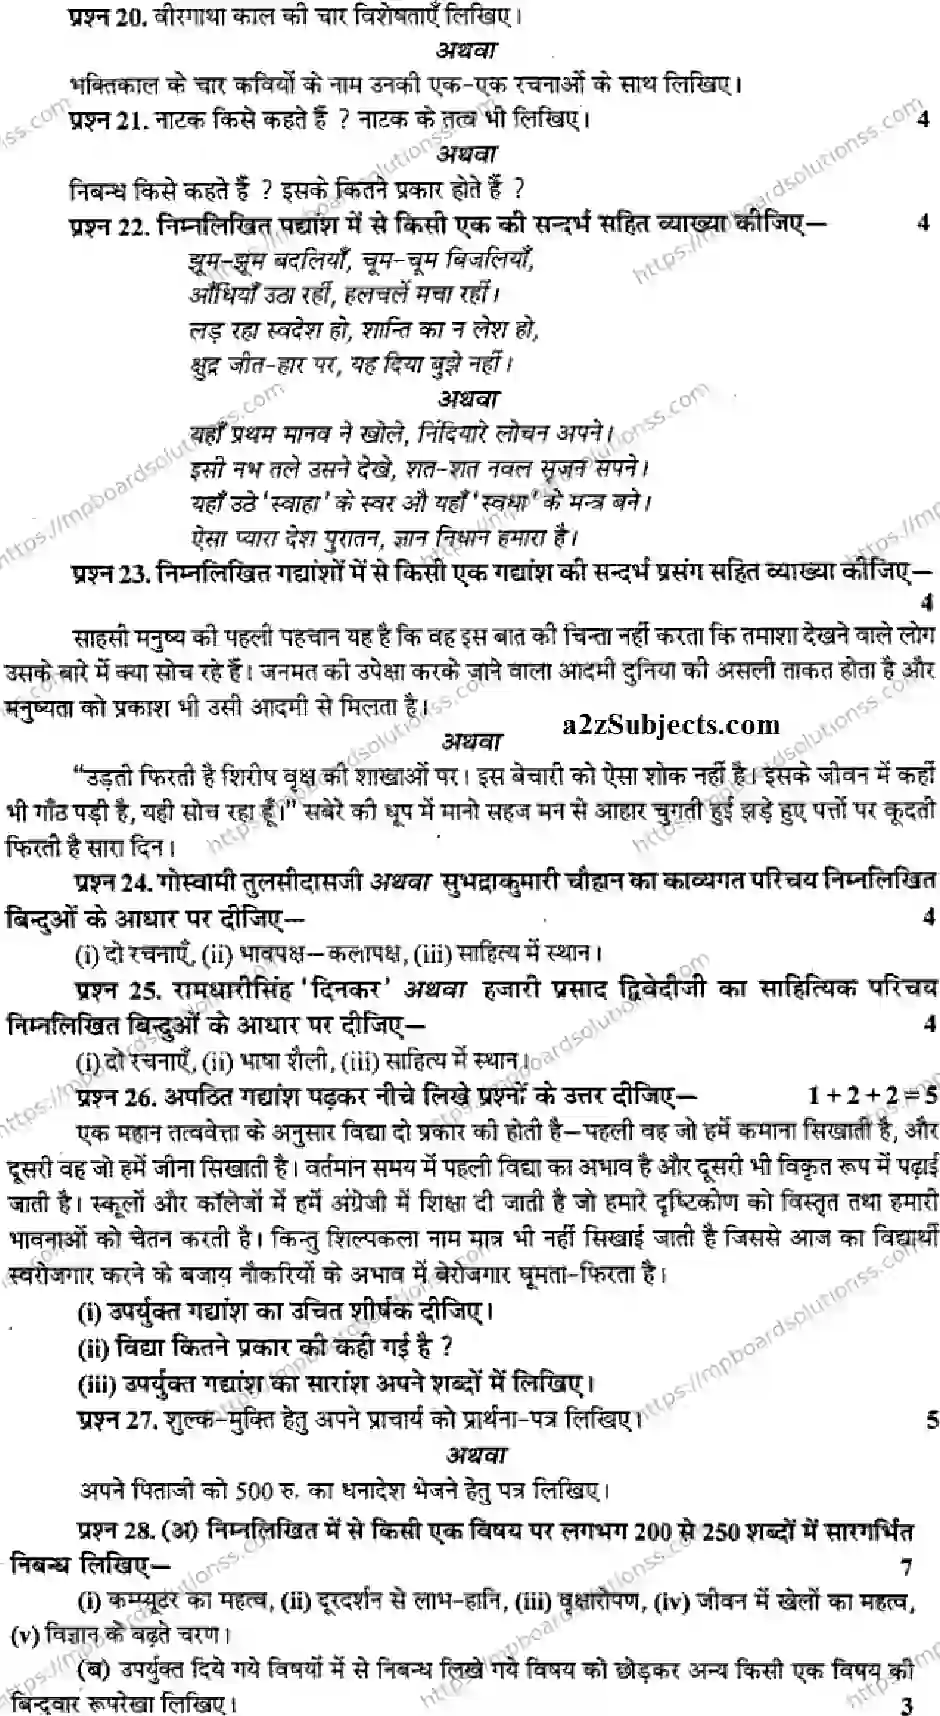 प्रश्न 20. वीरगाथा काल की चार विशेषताएँ लिखिए।
अथवा
भक्तिकाल के चार कवियों के नाम उनकी एक-एक रचनाओं के साथ लिखिए।
प्रश्न 21. नाटक किसे कहते हैं ? नाटक के तत्व भी लिखिए। 4
अथवा
निबन्ध किसे कहते हैं ? इसके कितने प्रकार होते हैं ?
प्रश्न 22. निम्नलिखित पद्यांश में से किसी एक की सन्दर्भ सहित व्याख्या कीजिए— 4
झूम-झूम बदलियाँ, चूम-चूम बिजलियाँ,
आँधियाँ उठा रहीं, हलचलें मचा रहीं।
लड़ रहा स्वदेश हो, शान्ति का न लेश हो,
क्षुद्र जीत-हार पर, यह दिया बुझे नहीं।
अथवा
यहाँ प्रथम मानव ने खोले, निंदियारे लोचन अपने।
इसी नभ तले उसने देखे, शत-शत नवल सृजन सपने।
यहाँ उठे 'स्वाहा' के स्वर औ यहाँ 'स्वधा' के मन्त्र बने।
ऐसा प्यारा देश पुरातन, ज्ञान निधान हमारा है।
प्रश्न 23. निम्नलिखित गद्यांशों में से किसी एक गद्यांश की सन्दर्भ प्रसंग सहित व्याख्या कीजिए—
4
साहसी मनुष्य की पहली पहचान यह है कि वह इस बात की चिन्ता नहीं करता कि तमाशा देखने वाले लोग
उसके बारे में क्या सोच रहे हैं। जनमत की उपेक्षा करके जाने वाला आदमी दुनिया की असली ताकत होता है और
मनुष्यता को प्रकाश भी उसी आदमी से मिलता है।
a2zSubjects.com
अथवा
“उड़ती फिरती है शिरीष वृक्ष की शाखाओं पर। इस बेचारी को ऐसा शोक नहीं है। इसके जीवन में कहीं
भी गाँठ पड़ी है, यही सोच रहा हूँ।” सबेरे की धूप में मानो सहज मन से आहार चुगती हुई झड़े हुए पत्तों पर कूदती
फिरती है सारा दिन।
प्रश्न 24. गोस्वामी तुलसीदासजी अथवा सुभद्राकुमारी चौहान का काव्यगत परिचय निम्नलिखित
बिन्दुओं के आधार पर दीजिए— 4
(i) दो रचनाएँ, (ii) भावपक्ष—कलापक्ष, (iii) साहित्य में स्थान।
प्रश्न 25. रामधारीसिंह 'दिनकर' अथवा हजारी प्रसाद द्विवेदीजी का साहित्यिक परिचय
निम्नलिखित बिन्दुओं के आधार पर दीजिए— 4
(i) दो रचनाएँ, (ii) भाषा शैली, (iii) साहित्य में स्थान।
प्रश्न 26. अपठित गद्यांश पढ़कर नीचे लिखे प्रश्नों के उत्तर दीजिए— 1 + 2 + 2 = 5
एक महान तत्ववेत्ता के अनुसार विद्या दो प्रकार की होती है—पहली वह जो हमें कमाना सिखाती है, और
दूसरी वह जो हमें जीना सिखाती है। वर्तमान समय में पहली विद्या का अभाव है और दूसरी भी विकृत रूप में पढ़ाई
जाती है। स्कूलों और कॉलेजों में हमें अंग्रेजी में शिक्षा दी जाती है जो हमारे दृष्टिकोण को विस्तृत तथा हमारी
भावनाओं को चेतन करती है। किन्तु शिल्पकला नाम मात्र भी नहीं सिखाई जाती है जिससे आज का विद्यार्थी
स्वरोजगार करने के बजाय नौकरियों के अभाव में बेरोजगार घूमता-फिरता है।
(i) उपर्युक्त गद्यांश का उचित शीर्षक दीजिए।
(ii) विद्या कितने प्रकार की कही गई है ?
(iii) उपर्युक्त गद्यांश का सारांश अपने शब्दों में लिखिए।
प्रश्न 27. शुल्क-मुक्ति हेतु अपने प्राचार्य को प्रार्थना-पत्र लिखिए। 5
अथवा
अपने पिताजी को 500 रु. का धनादेश भेजने हेतु पत्र लिखिए।
प्रश्न 28. (अ) निम्नलिखित में से किसी एक विषय पर लगभग 200 से 250 शब्दों में सारगर्भित
निबन्ध लिखिए— 7
(i) कम्प्यूटर का महत्व, (ii) दूरदर्शन से लाभ-हानि, (iii) वृक्षारोपण, (iv) जीवन में खेलों का महत्व,
(v) विज्ञान के बढ़ते चरण।
(ब) उपर्युक्त दिये गये विषयों में से निबन्ध लिखे गये विषय को छोड़कर अन्य किसी एक विषय की
बिन्दुवार रूपरेखा लिखिए। 3
https://mpboardsolutionss.com